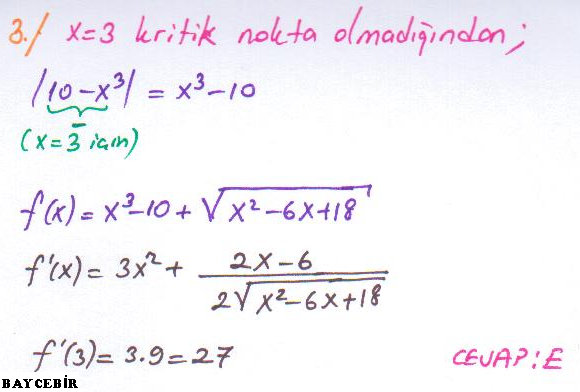 3./ x=3 kritik nokta olmadığından;
|10-x³| = x³-10
-
(x=3 için)
f(x)= x³-10 + √x²-6x+18
f'(x)= 3x² + 2x-6 / 2√x²-6x+18
f'(3)= 3.9=27 CEVAP:E
BAYCEBİR